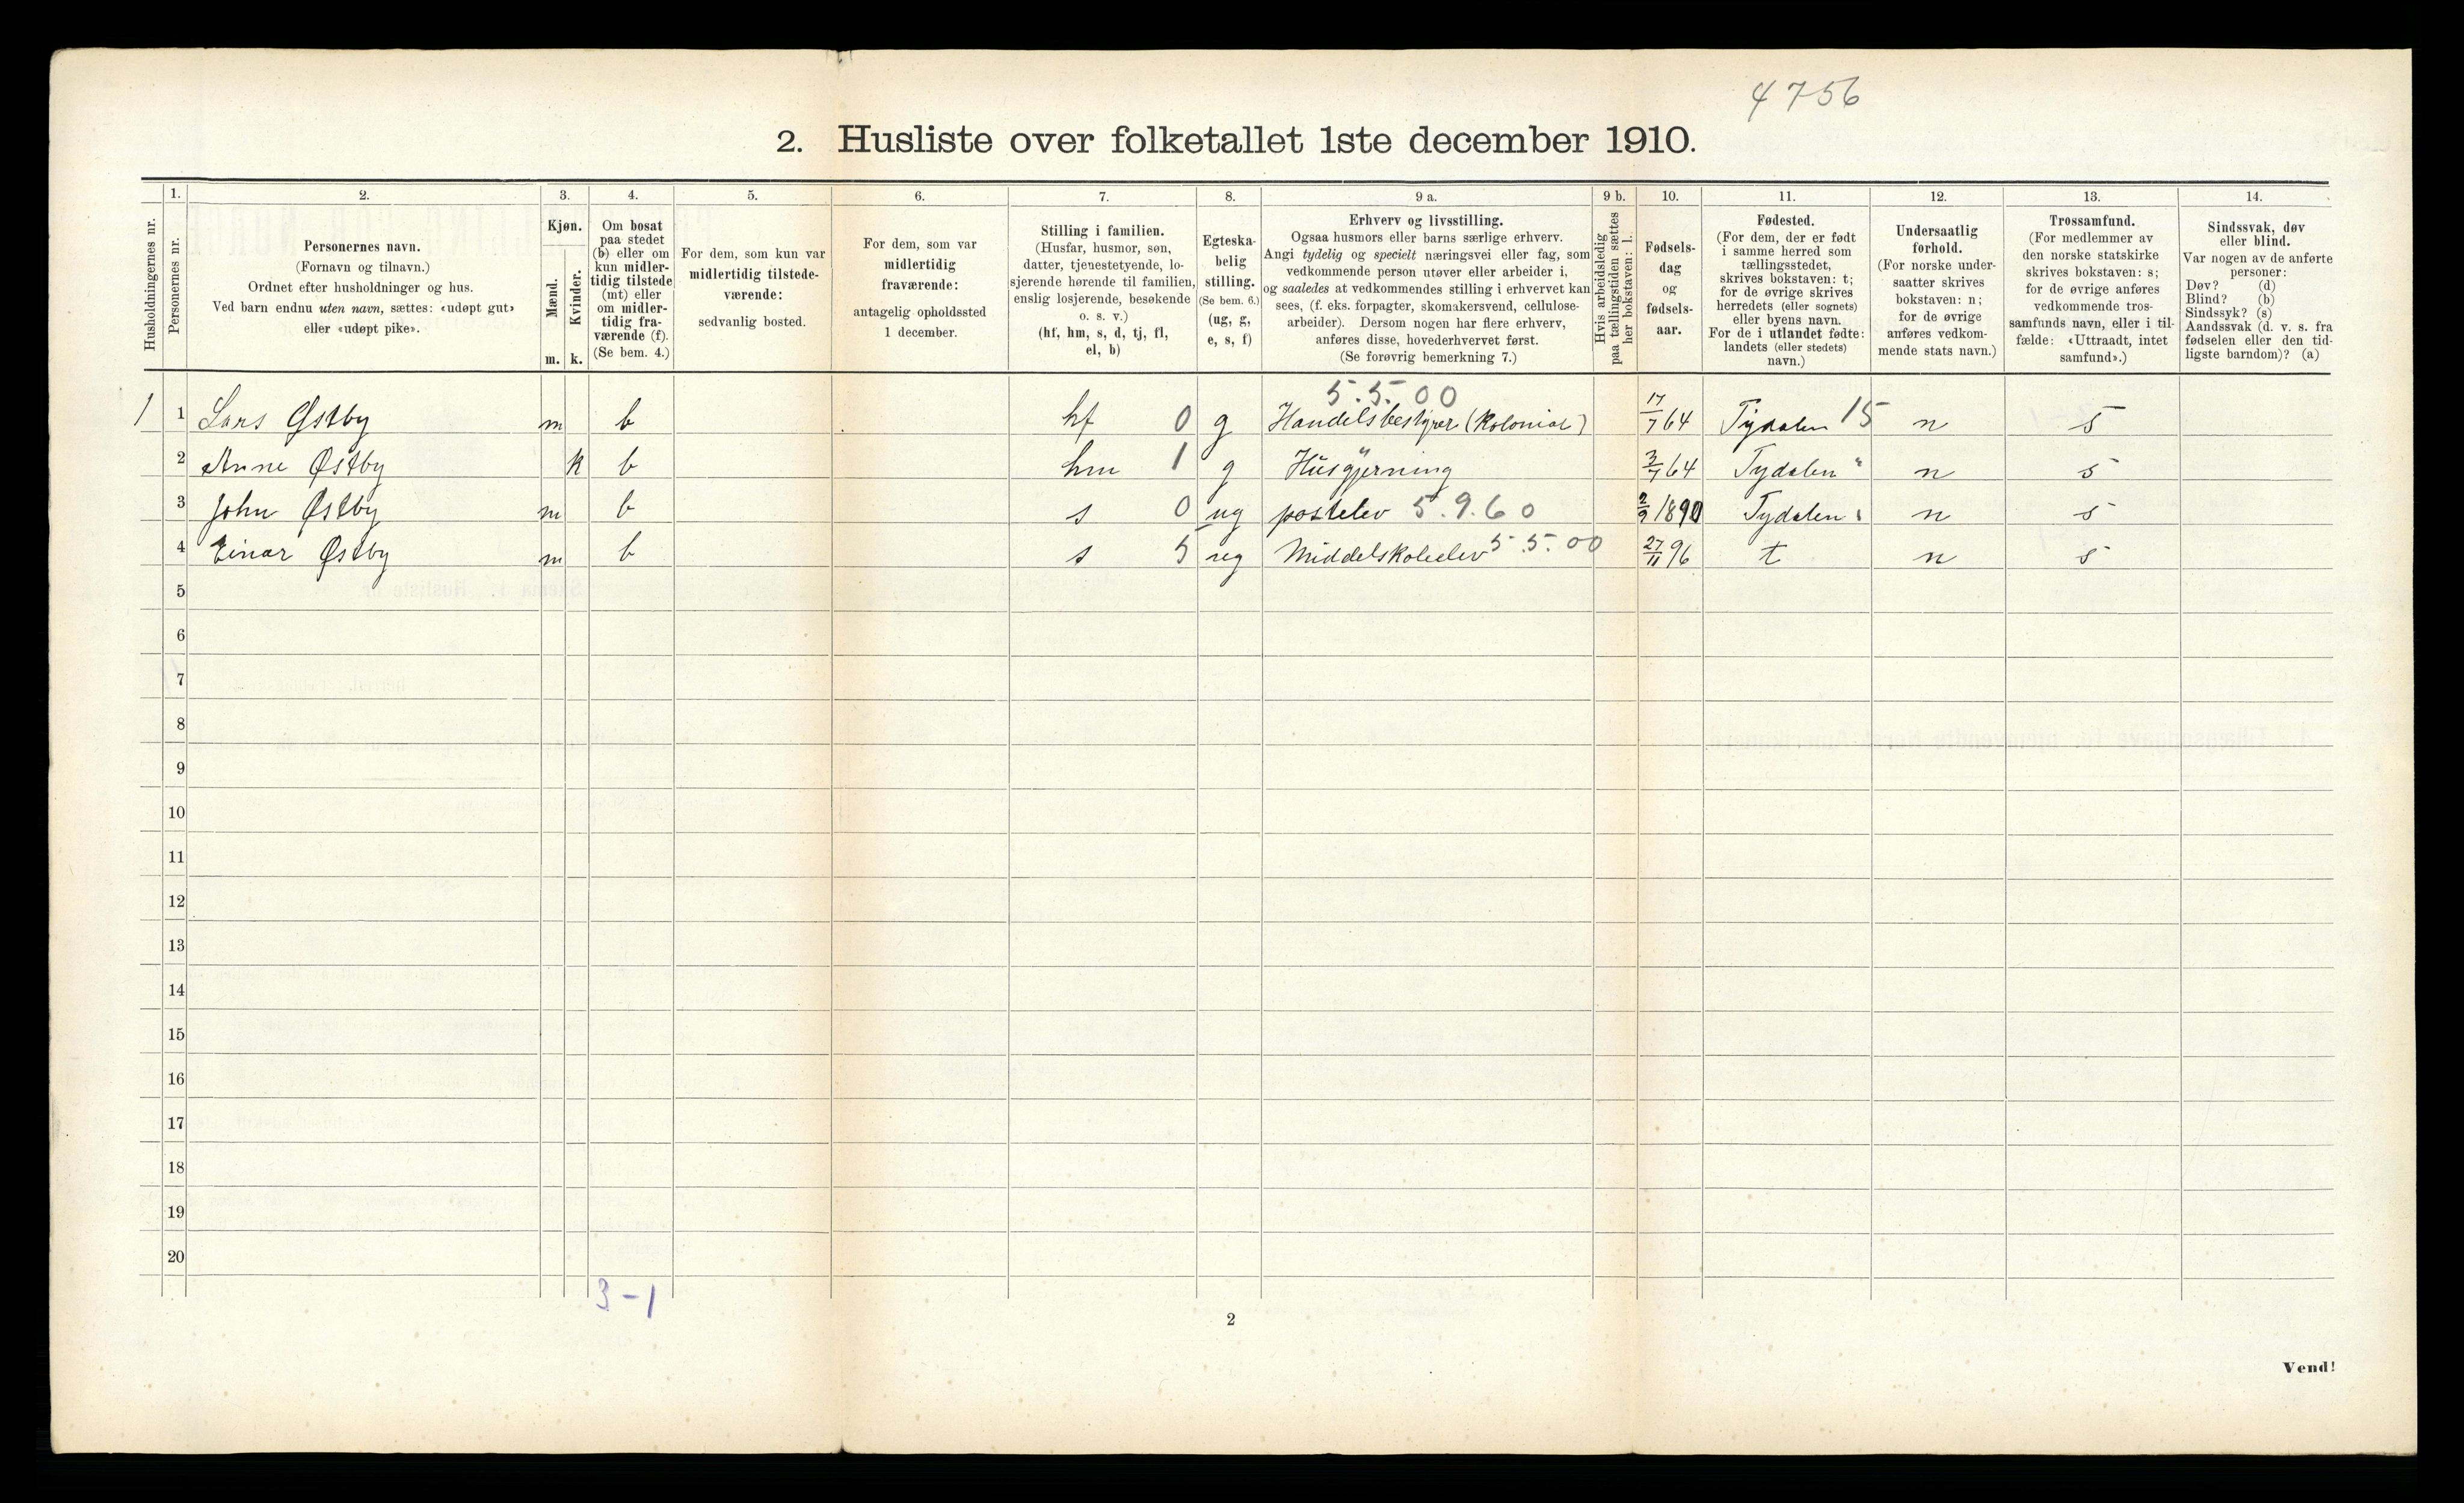 4756
2. Husliste over folketallet 1ste december 1910.
1. 2. 3. 4. 5. 6. 7. 8. 9 a. 9 b. 10. 11. 12. 13. 14.
Husholdningernes nr.
Personernes nr.
Personernes navn.
(Fornavn og tilnavn.)
Ordnet efter husholdninger og hus.
Ved barn endnu uten navn, sættes: «udøpt gut»
eller «udøpt pike».
Kjøn.
Mænd.
Kvinder.
m. k.
Om bosat
paa stedet
(b) eller om
kun midler-
tidig tilstede
(mt) eller
om midler-
tidig fra-
værende (f).
(Se bem. 4.)
For dem, som kun var
midlertidig tilstede-
værende:
sedvanlig bosted.
For dem, som var
midlertidig
fraværende:
antagelig opholdssted
1 december.
Stilling i familien.
(Husfar, husmor, søn,
datter, tjenestetyende, lo-
sjerende hørende til familien,
enslig losjerende, besøkende
o. s. v.)
(hf, hm, s, d, tj, fl,
el, b)
Egteska-
belig
stilling.
(Se bem. 6.)
(ug, g,
e, s, f)
Erhverv og livsstilling.
Ogsaa husmors eller barns særlige erhverv.
Angi tydelig og specielt næringsvei eller fag, som
vedkommende person utøver eller arbeider i,
og saaledes at vedkommendes stilling i erhvervet kan
sees, (f. eks. forpagter, skomakersvend, cellulose-
arbeider). Dersom nogen har flere erhverv,
anføres disse, hovederhvervet først.
(Se forøvrig bemerkning 7.)
Hvis arbeidsledig
paa tællingstiden sættes
her bokstaven: l.
Fødsels-
dag
og
fødsels-
aar.
Fødested.
(For dem, der er født
i samme herred som
tællingsstedet,
skrives bokstaven: t;
for de øvrige skrives
herredets (eller sognets)
eller byens navn.
For de i utlandet fødte:
landets (eller stedets)
navn.)
Undersaatlig
forhold.
(For norske under-
saatter skrives
bokstaven: n;
for de øvrige
anføres vedkom-
mende stats navn.)
Trossamfund.
(For medlemmer av
den norske statskirke
skrives bokstaven: s;
for de øvrige anføres
vedkommende tros-
samfunds navn, eller i til-
fælde: «Uttraadt, intet
samfund».)
Sindssvak, døv
eller blind.
Var nogen av de anførte
personer:
Døv? (d)
Blind? (b)
Sindssyk? (s)
Aandssvak (d. v. s. fra
fødselen eller den tid-
ligste barndom)? (a)
5.5.00
1 1 Lars Østby m b hf 0 g Handelsbestyrer (Kolonial) 17/7 64 Tydalen 15 n s
2 Anne Østby k b hm 1 g Husgjerning 3/7 64 Tydalen " n s
3 John Østby m b s 0 ug postelev 5.9.60 2/9 1890 Tydalen n s
4 Einar Østby m b s 5 ug Middelskoleelev 5.5.00 27/11 96 t n s
5
6
7
8
9
10
11
12
13
14
15
16
17
18
19
20
3-1
2
Vend!